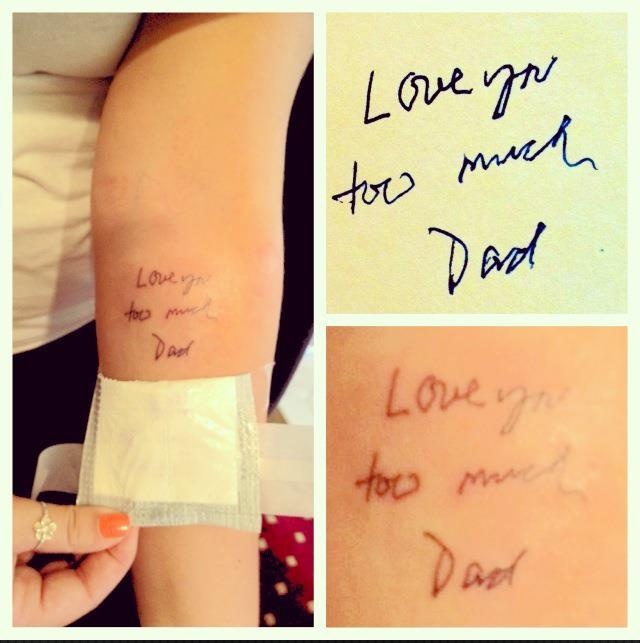 Love you
too much
Dad
Love you
too much
Dad
Love you
too much
Dad